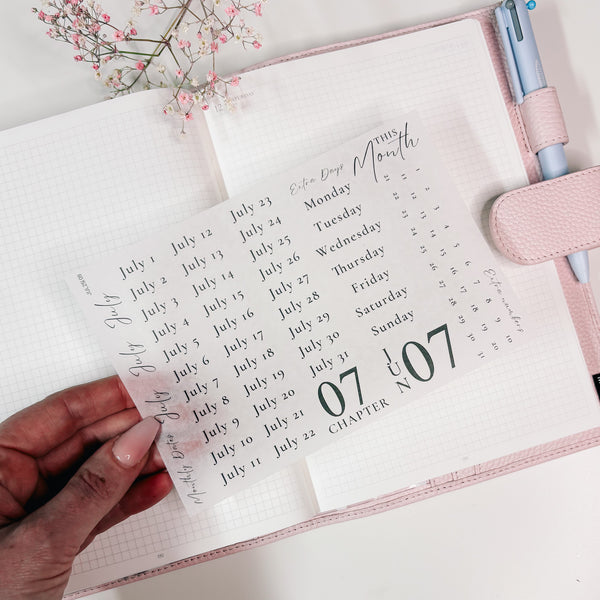 THIS
Month
Extra Days
July 1
July 2
July 3
July 4
July 5
July 6
July 7
July 8
July 9
July 10
July 11
July 12
July 13
July 14
July 15
July 16
July 17
July 18
July 19
July 20
July 21
July 22
July 23
July 24
July 25
July 26
July 27
July 28
July 29
July 30
July 31
Monday
Tuesday
Wednesday
Thursday
Friday
Saturday
Sunday
07
CHAPTER
JUN
07
July
July
July
Monthly Dates
Extra numbers